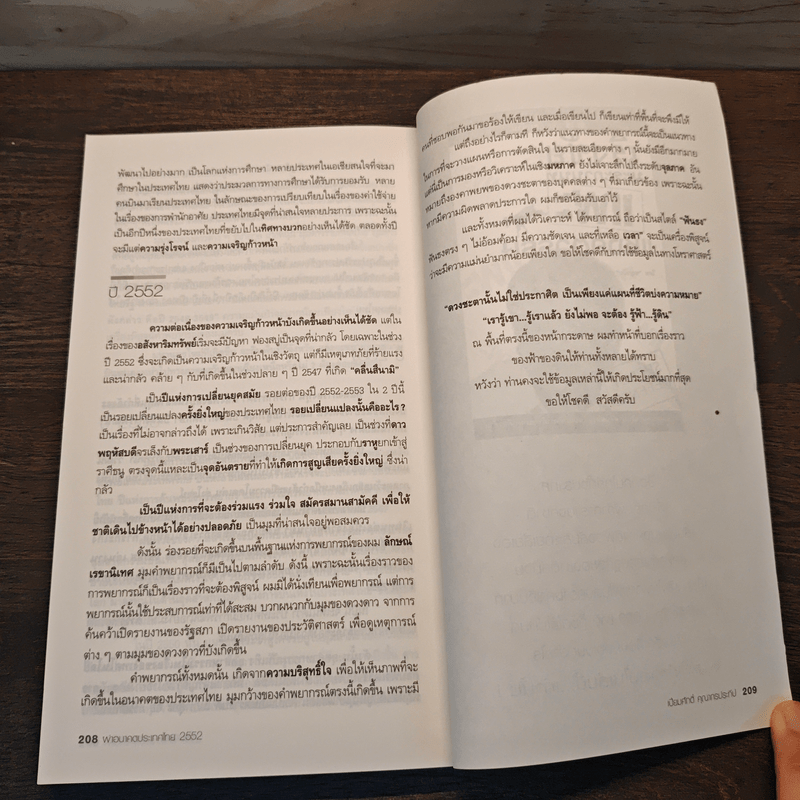 พัฒนาไปอย่างมาก เป็นโลกแห่งการศึกษา หลายประเทศในเอเชียสนใจที่จะมา
ศึกษาในประเทศไทย แสดงว่าประมวลการทางการศึกษาได้รับการยอมรับ หลาย
คนเป็นมาเรียนประเทศไทย ในลักษณะของการเปรียบเทียบในเรื่องของค่าใช้จ่าย
ในเรื่องของการพำนักอาศัย ประเทศไทยมีจุดที่น่าสนใจหลายประการ เพราะฉะนั้น
เป็นอีกปีหนึ่งของประเทศไทยที่ขยับไปในทิศทางบวกอย่างเห็นได้ชัด ตลอดทั้งปี
จะมีแต่ความรุ่งโรจน์ และความเจริญก้าวหน้า
ปี 2552
ความต่อเนื่องของความเจริญก้าวหน้าบังเกิดขึ้นอย่างเห็นได้ชัด แต่ใน
เรื่องของอสังหาริมทรัพย์เริ่มจะมีปัญหา ฟองสบู่เป็นจุดที่น่ากลัว โดยเฉพาะในช่วง
ปี 2552 ซึ่งจะเกิดเป็นความเจริญก้าวหน้าในเชิงวัตถุ แต่ก็มีเหตุเภทภัยที่ร้ายแรง
และน่ากลัว คล้าย ๆ กับที่เกิดขึ้นในช่วงปลาย ๆ ปี 2547 ที่เกิด "คลื่นสึนามิ"
เป็นปีแห่งการเปลี่ยนยุคสมัย รอยต่อของปี 2552-2553 ใน 2 ปีนี้
เป็นรอยเปลี่ยนแปลงครั้งยิ่งใหญ่ของประเทศไทย รอยเปลี่ยนแปลงนั้นคืออะไร?
เป็นเรื่องที่ไม่อาจกล่าวถึงได้ เพราะเกินวิสัย แต่ประการสำคัญเลย เป็นช่วงที่ดาว
พฤหัสบดีจรเล็งกับพระเสาร์ เป็นช่วงของการเปลี่ยนยุค ประกอบกับราหูยกเข้าสู่
ราศีธนู ตรงจุดนี้แหละเป็นจุดอันตรายที่ทำให้เกิดการสูญเสียครั้งยิ่งใหญ่ ซึ่งน่า
กลัว
เป็นปีแห่งการที่จะต้องร่วมแรง ร่วมใจ สมัครสมานสามัคคี เพื่อให้
ชาติเดินไปข้างหน้าได้อย่างปลอดภัย เป็นมุมที่น่าสนใจอยู่พอสมควร
ดังนั้น ร่องรอยที่จะเกิดขึ้นบนพื้นฐานแห่งการพยากรณ์ของผม ลักษณ์
เรขานิเทศ มุมคำพยากรณ์ก็มีเป็นไปตามลำดับ ดังนี้ เพราะฉะนั้นเรื่องราวของ
การพยากรณ์ก็เป็นเรื่องราวที่จะต้องพิสูจน์ ผมมิได้นั่งเทียนเพื่อพยากรณ์ แต่การ
พยากรณ์นั้นใช้ประสบการณ์เท่าที่ได้สะสม บวกผนวกกับมุมของดวงดาว จากการ
ค้นคว้าเปิดรายงานของรัฐสภา เปิดรายงานของประวัติศาสตร์ เพื่อดูเหตุการณ์
ต่าง ๆ ตามมุมของดวงดาวที่บังเกิดขึ้น
คำพยากรณ์ทั้งหมดนั้น เกิดจากความบริสุทธิ์ใจ เพื่อให้เห็นภาพที่จะ
เกิดขึ้นในอนาคตของประเทศไทย มุมกว้างของคำพยากรณ์ตรงนี้เกิดขึ้น เพราะมี
208 ผ่าอนาคตประเทศไทย 2552
คนที่ชอบพอกันมาขอร้องให้เขียน และเมื่อเขียนไป ก็เขียนเท่าที่พื้นที่จะพึงมีให้
แต่ถึงอย่างไรก็ตามที ก็หวังว่าแนวทางของคำพยากรณ์นี้จะเป็นแนวทาง
ในการที่จะวางแผนหรือการตัดสินใจ ในรายละเอียดต่าง ๆ นั้นยังมีอีกมากมาย
แต่นี้เป็นการมองหรือวิเคราะห์ในเชิงมหภาค ยังไม่เจาะลึกไปถึงระดับจุลภาค อัน
หมายถึงองคาพยพของดวงชะตาของบุคคลต่าง ๆ ที่มาเกี่ยวข้อง เพราะฉะนั้น
หากมีความผิดพลาดประการใด ผมก็ขอน้อมรับเอาไว้
และทั้งหมดที่ผมได้วิเคราะห์ ได้พยากรณ์ ถือว่าเป็นสไตล์ "ฟันธง"
ฟันธงตรง ๆ ไม่อ้อมค้อม มีความชัดเจน และที่เหลือ เวลา" จะเป็นเครื่องพิสูจน์
ว่าจะมีความแม่นยำมากน้อยเพียงใด ขอให้โชคดีกับการใช้ข้อมูลในทางโหราศาสตร์
"ดวงชะตานั้นไม่ใช่ประกาศิต เป็นเพียงแค่แผนที่ชีวิตบ่งความหมาย"
"เรารู้เขา...รู้เราแล้ว ยังไม่พอ จะต้อง รู้ฟ้า...รู้ดิน"
ณ พื้นที่ตรงนี้ของหน้ากระดาษ ผมทำหน้าที่บอกเรื่องราว
ของฟ้าของดินให้ท่านทั้งหลายได้ทราบ
หวังว่า ท่านคงจะใช้ข้อมูลเหล่านี้ให้เกิดประโยชน์มากที่สุด
ขอให้โชคดี สวัสดีครับ
209